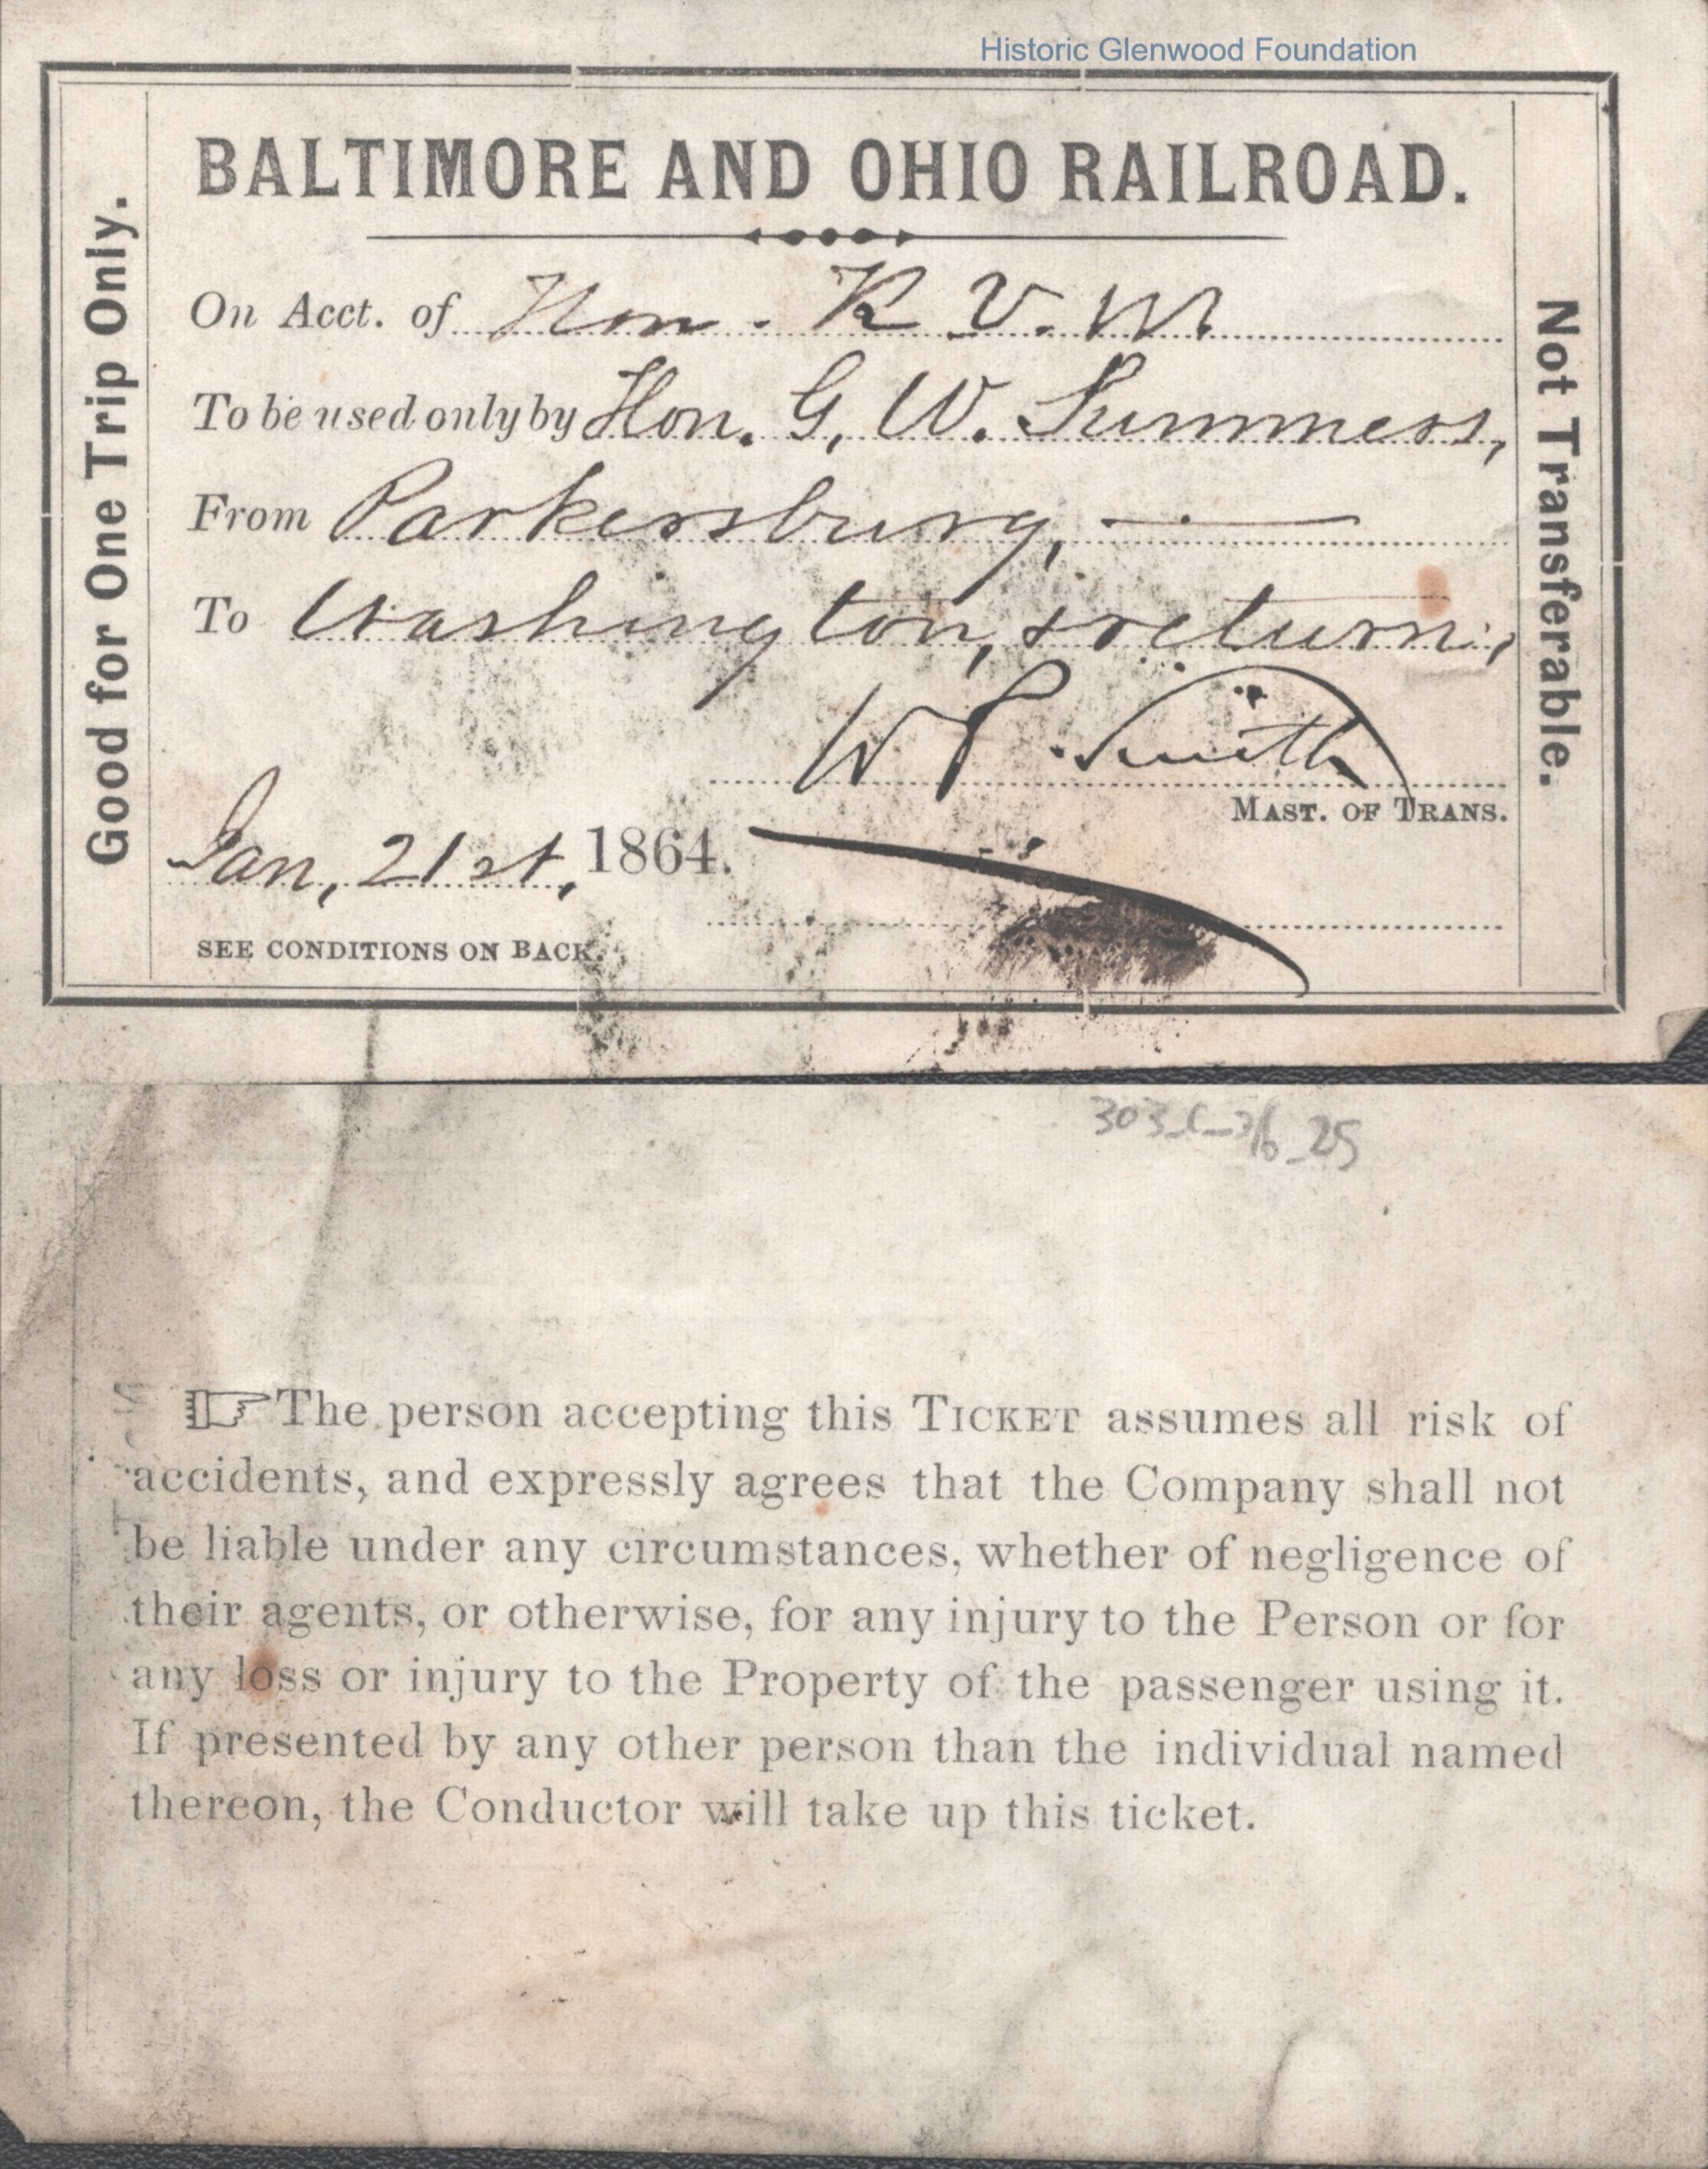 Historic Glenwood Foundation
BALTIMORE AND OHIO RAILROAD.
Good for One Trip Only.
On Acct. of Hon. K V. W.
To be used only by Hon. G. W. Summers,
From Parkersburg,
To Washington, & return,
W P. Smith
MAST. OF TRANS.
Jan, 21st, 1864.
SEE CONDITIONS ON BACK.
Not Transferable.
☞ The person accepting this TICKET assumes all risk of
accidents, and expressly agrees that the Company shall not
be liable under any circumstances, whether of negligence of
their agents, or otherwise, for any injury to the Person or for
any loss or injury to the Property of the passenger using it.
If presented by any other person than the individual named
thereon, the Conductor will take up this ticket.